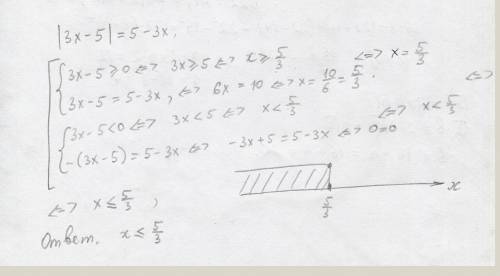 |3x-5|=5-3x,
3x-5≥0 ⇔ 3x≥5 ⇔ x≥5/3 ⇔ x=5/3
3x-5=5-3x, ⇔ 6x=10 ⇔ x=10/6=5/3. ⇔
3x-5<0 ⇔ 3x<5 ⇔ x<5/3 ⇔ x<5/3
-(3x-5)=5-3x ⇔ -3x+5=5-3x ⇔ 0=0
⇔ x≤5/3,
5/3 x
Ответ. x≤5/3